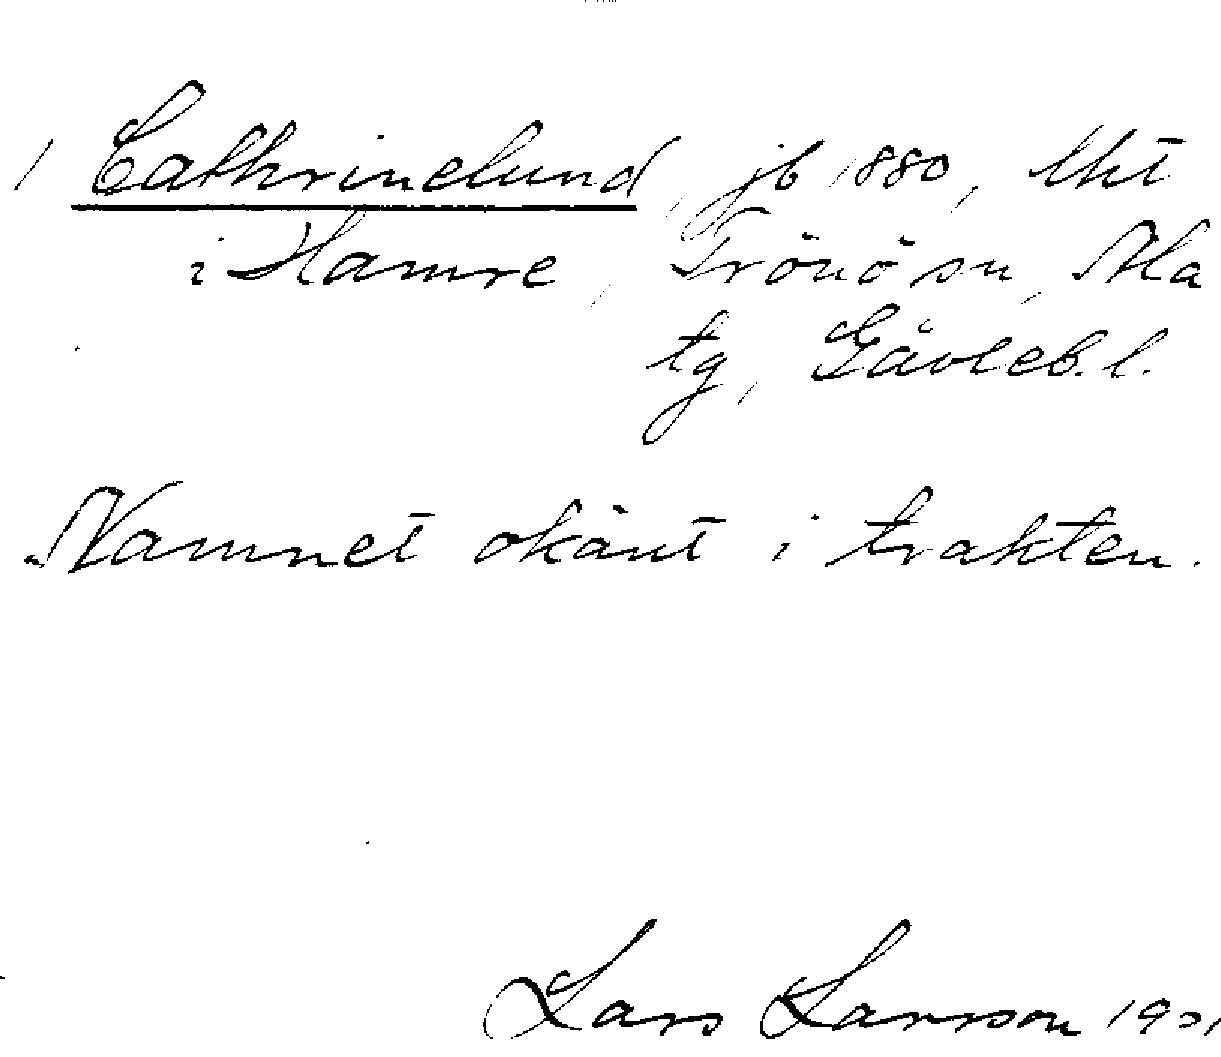 / Cathrinelund, jb 1880, lht
i Hamre, Trönö sn, Ala
tg, Gävleb. l.
Namnet okänt i trakten.
Lars Larsson